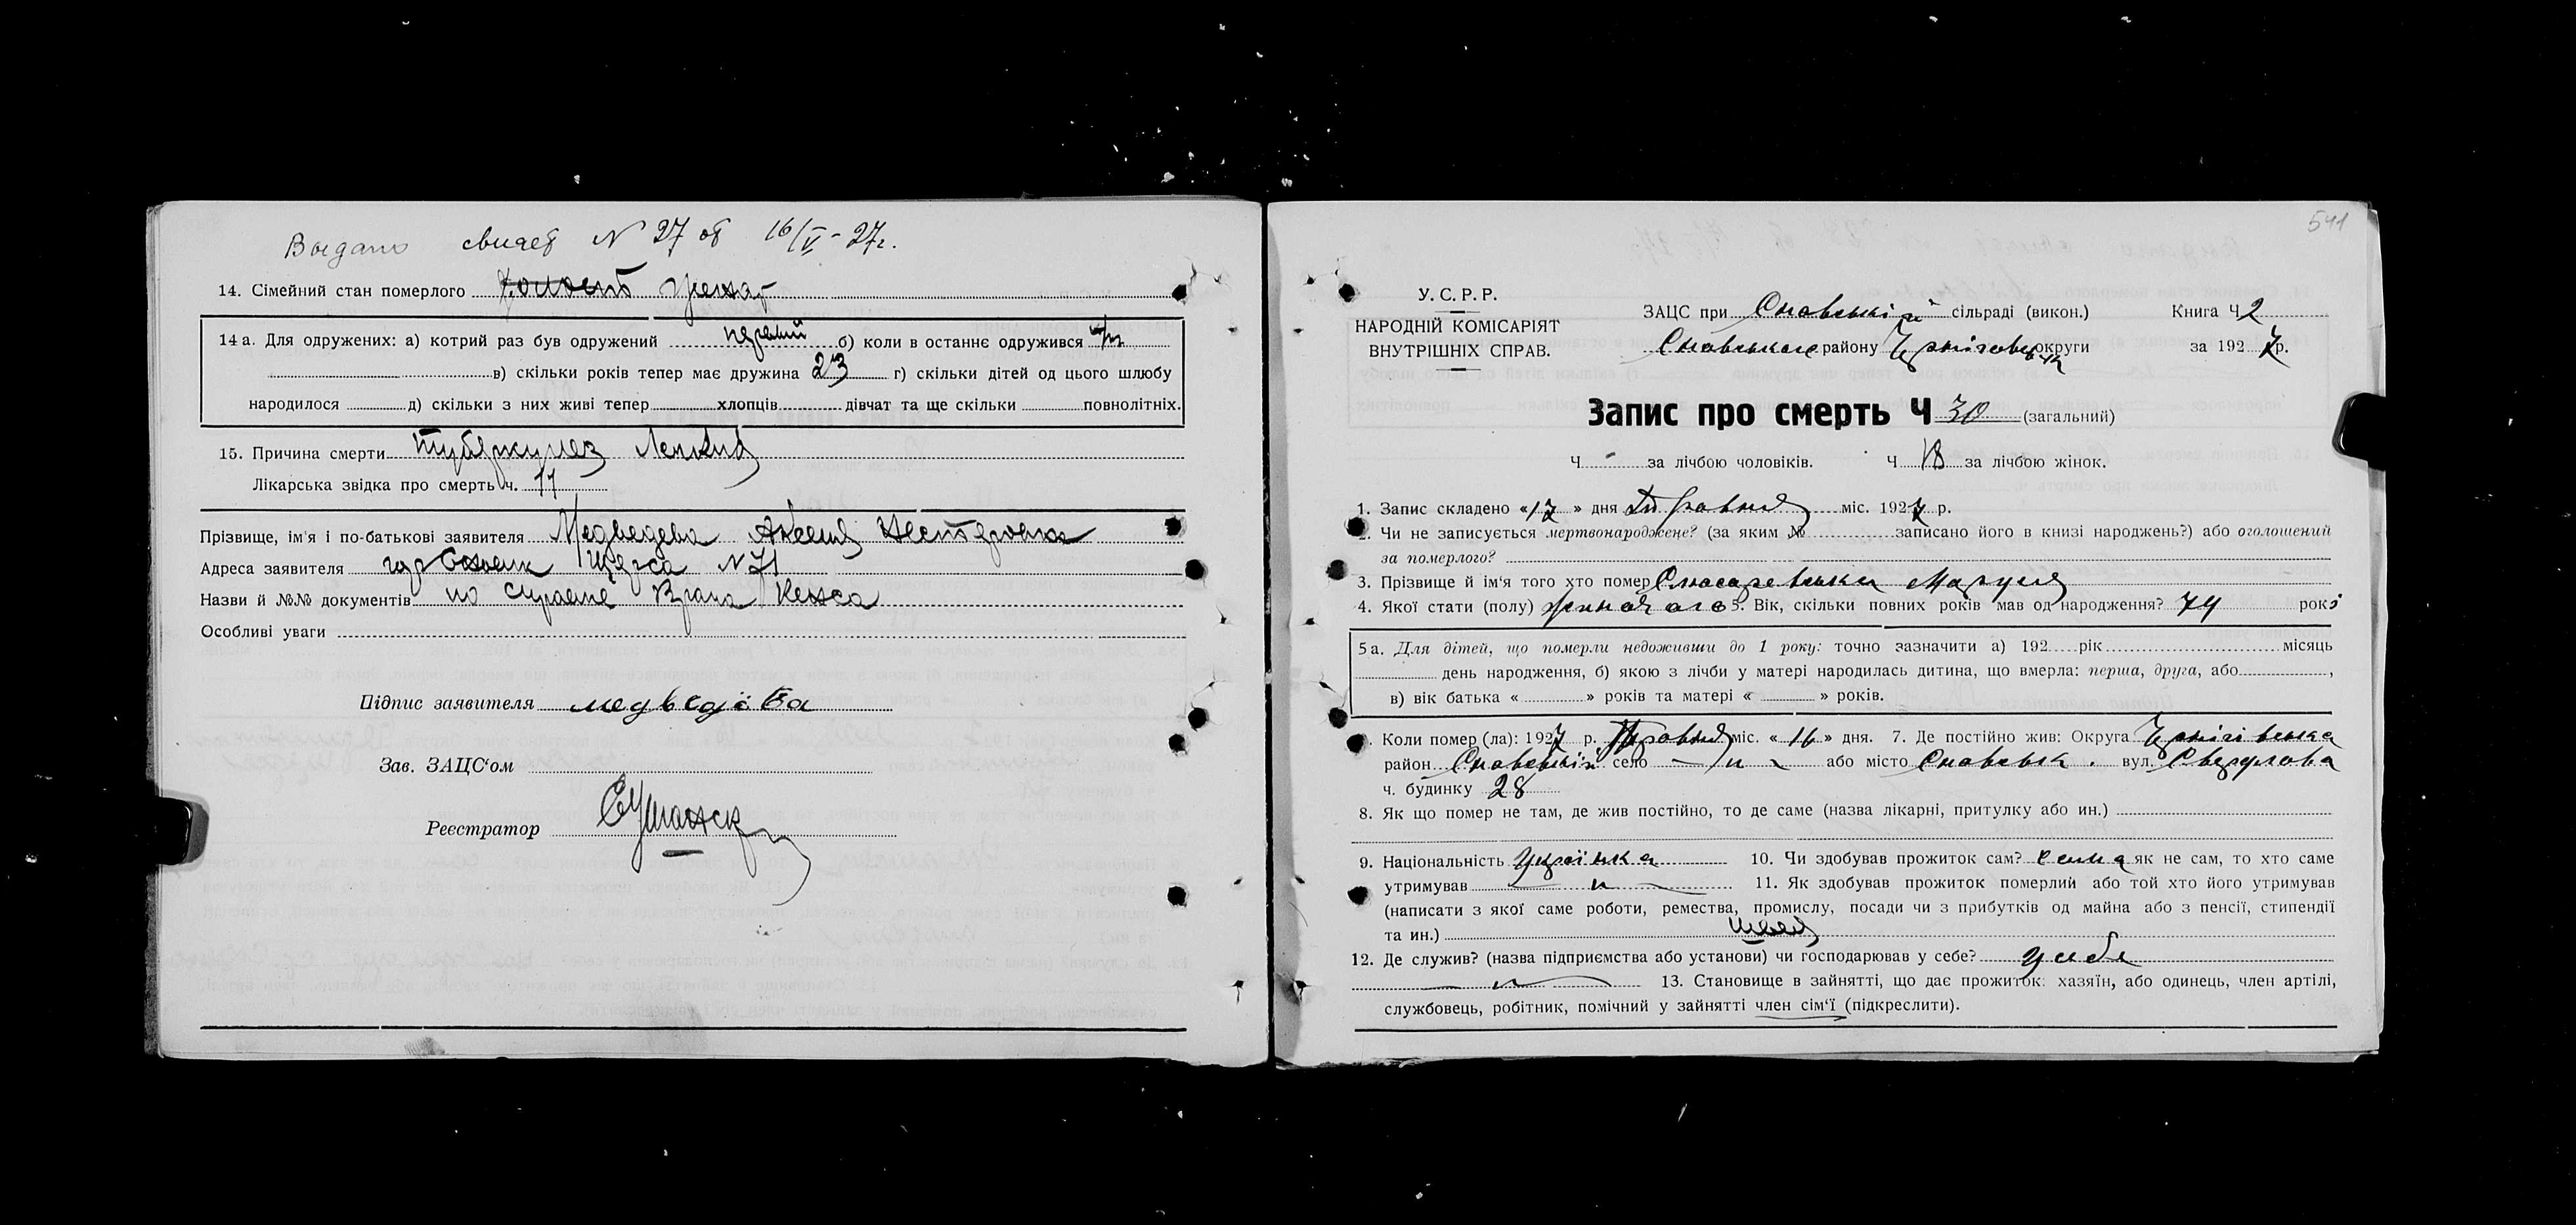 Выдано свидет N 27 от 16/V-27г.
14. Сімейний стан померлого холост женат
14 а. Для одружених: а) котрий раз був одружений первый б) коли в останнє одружився
в) скільки років тепер має дружина 23 г) скільки дітей од цього шлюбу
народилося д) скільки з них живі тепер хлопців дівчат та ще скільки повнолітніх.
15. Причина смерти туберкулез Легких
Лікарська звідка про смерть ч. 17
Прізвище, ім'я і по-батькові заявителя Медведева Нестеровна
Адреса заявителя гор Сновск Щорса N 71
Назви й №№ документів по справке Врача
Особливі уваги
Підпис заявителя медведева
Зав. ЗАЦС‘ом
Реєстратор
541
У. С. Р. Р.
НАРОДНІЙ КОМІСАРІЯТ
ВНУТРІШНІХ СПРАВ.
ЗАЦС при Сновській сільраді (викон.) Книга Ч 2
Сновського району Черніговськ округи за 1927 р.
Запис про смерть Ч 30 (загальний)
Ч - за лічбою чоловіків. Ч 18 за лічбою жінок.
1. Запис складено «17» дня Травня міс. 1927 р.
2. Чи не записується мертвонароджене? (за яким № записано його в книзі народжень?) або оголошений
за померлого?
3. Прізвище й ім‘я того хто помер Маруся
4. Якої стати (полу) жиночого 5. Вік, скільки повних років мав од народження? 74 рокі
5 а. Для дітей, що померли недоживши до 1 року: точно зазначити а) 192 рік місяць
день народження, б) якою з лічби у матері народилась дитина, що вмерла: перша, друга, або ,
в) вік батька « » років та матері « » років.
. Коли помер (ла): 1927 р. Травня міс. «16» дня. 7. Де постійно жив: Округа Чернігівська
район Сновський село — „ — або місто Сновськ. вул. Свердлова
ч. будинку 28
8. Як що помер не там, де жив постійно, то де саме (назва лікарні, притулку або ин.)
9. Національність Українка 10. Чи здобував прожиток сам? сама як не сам, то хто саме
утримував — „ — 11. Як здобував прожиток померлий або той хто його утримував
(написати з якої саме роботи, ремества, промислу, посади чи з прибутків од майна або з пенсії, стипендії
та ин.) швея
12. Де служив? (назва підприємства або установи) чи господарював у себе? у себе
— „ — 13. Становище в зайнятті, що дає прожиток: хазяїн, або одинець, член артілі,
службовець, робітник, помічний у зайнятті член сім‘ї (підкреслити).